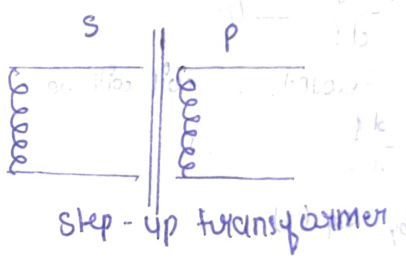 S P
Step-up transformer